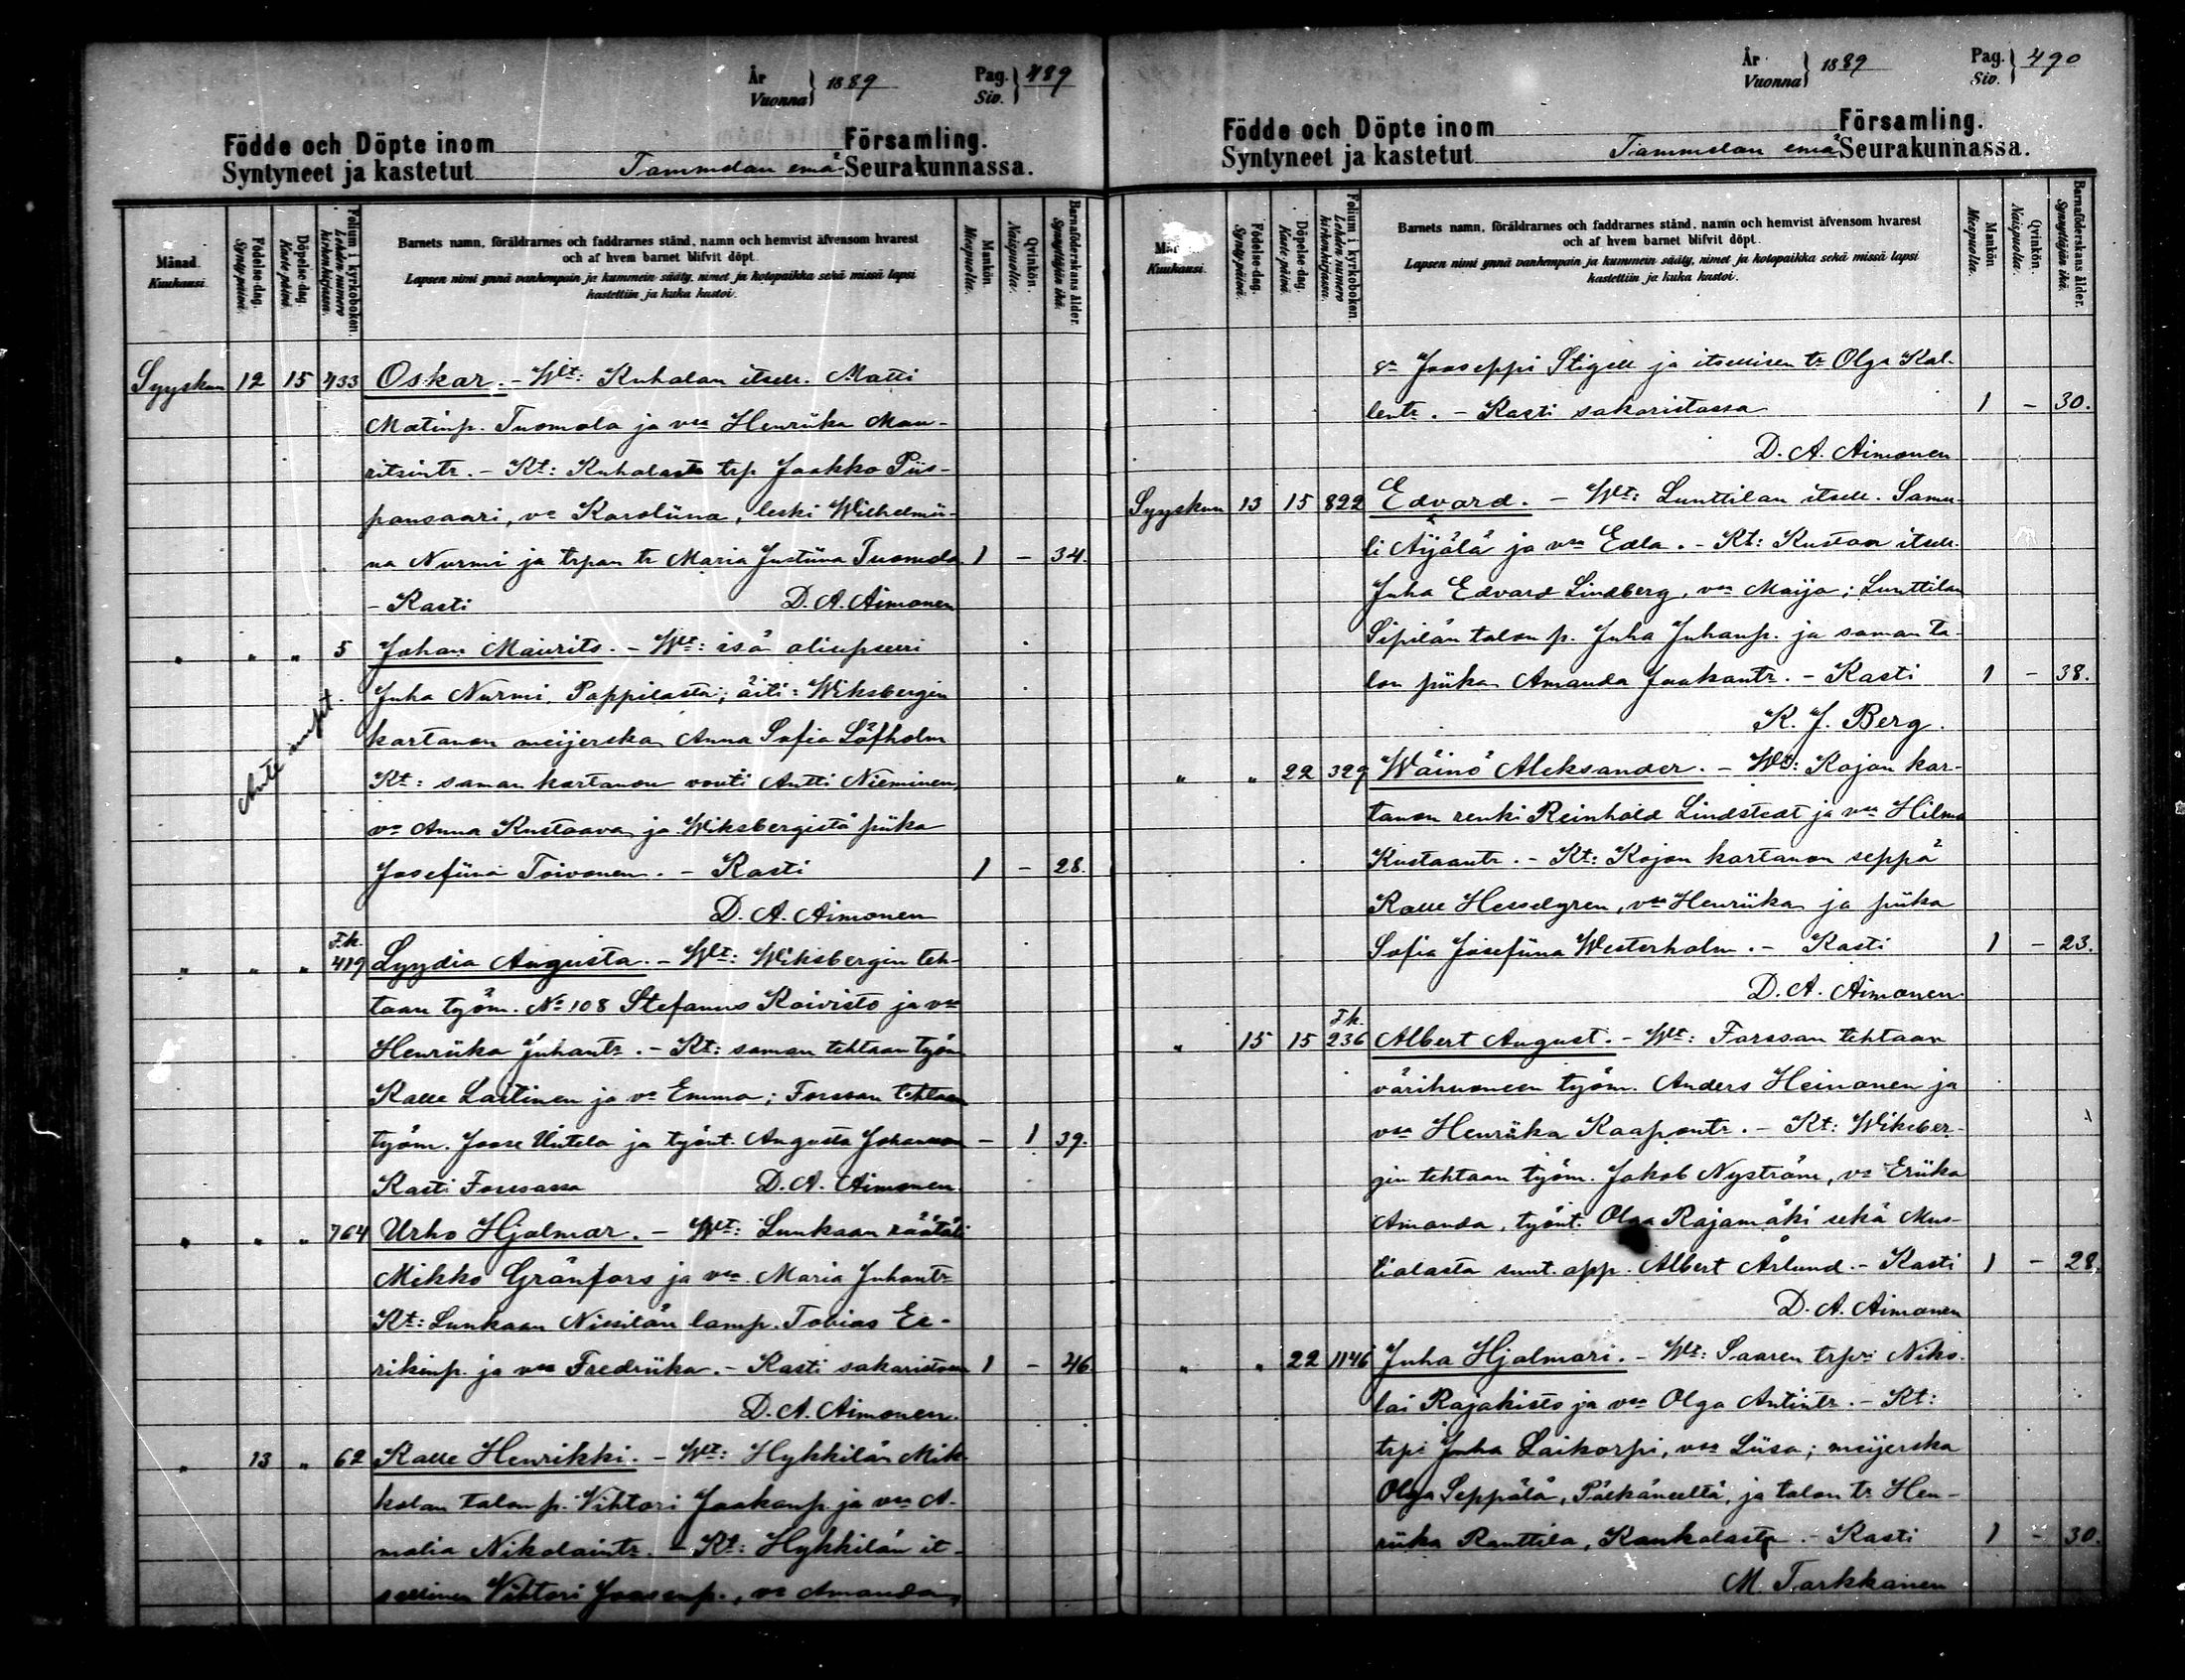 År Vuonna } 1889 Pag. Siv. } 489
Födde och Döpte inom Församling.
Syntyneet ja kastetut Tammelan emä Seurakunnassa.
Månad. Kuukausi.
Födelse-dag. Synty päivä.
Döpelse-dag. Kaste päivä.
Folium i kyrkoboken. Lehden numero kirkonkirjassa.
Barnets namn, föräldrarnes och faddrarnes stånd, namn och hemvist äfvensom hvarest
och af hvem barnet blifvit döpt.
Lapsen nimi ynnä vanhempain ja kummein sääty, nimet ja kotopaikka sekä missä lapsi
kastettiin ja kuka kastoi.
Mankön. Miespuolia.
Qvinkön. Naispuolia.
Barnaföderskans ålder. Synnyttäjän ikä.
Syyskuu 12 15 433 Oskar. - Wlt: Kuhalan itsell. Matti
Matinp. Tuomola ja vsa Henriika Mau-
ritsintr. - Kt: Kuhalasta trp. Jaakko Piis-
pansaari, vo Karoliina, leski Wilhelmii-
na Nurmi ja trpan tr Maria Justiina Tuomola 1 - 34.
- Kasti D. A. Aimonen
" " " 5 Johan Maurits. - Wlt: isä aliupseeri
Juha Nurmi, Pappilasta; äiti: Wiksbergin
kartanon meijerska Anna Sofia Löfholm
Kt: saman kartanon vouti Antti Nieminen,
vo Anna Kustaava ja Wiksbergistä piika
Josefiina Toivonen. - Kasti 1 - 28.
D. A. Aimonen
" " " F.k. 419 Lyydia Augusta. - Wlt: Wiksbergin teh-
taan työm. No 108 Stefanus Koivisto ja vsa
Henriika Juhantr. - Kt: saman tehtaan työm
Kalle Laitinen ja vo Emma; Forssan tehtaan
työm. Joose Uutela ja työnt. Augusta Johansson - 1 39.
Kasti Forssassa D. A. Aimonen.
" " " 764 Urho Hjalmar. - Wlt: Lunkaan räätäli
Mikko Grönfors ja vsa Maria Juhantr
Kt: Lunkaan Nissilän lamp. Tobias Ee-
rikinp. ja vsa Fredriika. - Kasti sakaristossa 1 - 46.
D. A. Aimonen.
" 13 " 62 Kalle Henrikki. - Wlt: Hykkilän Mik-
kolan talon p. Vihtori Jaakonp. ja vsa A-
malia Nikolaintr. - Kt: Hykkilän it-
sellinen Vihtori Joosenp., vo Amanda,
År Vuonna } 1889 Pag. Siv. } 490
Födde och Döpte inom Församling.
Syntyneet ja kastetut Tammelan emä Seurakunnassa.
Kuukausi.
Födelse-dag. Synty päivä.
Döpelse-dag. Kaste päivä.
Folium i kyrkoboken. Lehden numero kirkonkirjassa.
Barnets namn, föräldrarnes och faddrarnes stånd, namn och hemvist äfvensom hvarest
och af hvem barnet blifvit döpt.
Lapsen nimi ynnä vanhempain ja kummein sääty, nimet ja kotopaikka sekä missä lapsi
kastettiin ja kuka kastoi.
Mankön. Miespuolia.
Qvinkön. Naispuolia.
Barnaföderskans ålder. Synnyttäjän ikä.
Jooseppi Stigell ja itsellisen tr Olga Kal-
lentr. - Kasti sakaristassa 1 - 30.
D. A. Aimonen
Syyskuu 13 15 822 Edvard. - Wlt: Lunttilan itsell. Samu-
li Äijälä ja vsa Edla. - Kt: Kustaa itsell.
Juha Edvard Lindberg, vsa Maija; Lunttilan
Sipilän talon p. Juha Juhanp. ja saman ta-
lon piika Amanda Jaakontr. - Kasti 1 - 38.
K. J. Berg.
" " 22 329 Wäinö Aleksander. - Wlt: Kojon kar-
tanon renki Reinhold Lindstedt ja vsa Hilma
Kustaantr. - Kt: Kojon kartanon seppä
Kalle Hesselgren, vsa Henriika ja piika
Sofia Josefiina Westerholm. - Kasti 1 - 23.
D. A. Aimonen.
" 15 15 F.k. 236 Albert August. - Wlt: Forssan tehtaan
värihuoneen työm. Anders Heinonen ja
vsa Henriika Kaapontr. - Kt: Wiksber-
gin tehtaan työm. Jakob Nyström, vo Eriika
Amanda, työnt. Olga Rajamäki sekä Mus-
tialasta opp. Albert Årlund. - Kasti 1 - 28.
D. A. Aimonen
" " 22 1146 Juha Hjalmari. - Wlt: Saaren trpri Niko-
lai Rajakisto ja vsa Olga Antintr. - Kt:
trpi Juha Laikorpi, vsa Liisa; meijerska
Olga Seppälä, Pälkäneeltä, ja talon tr Hen-
riika Ranttila, Kaukolasta. - Kasti 1 - 30.
M. Tarkkanen